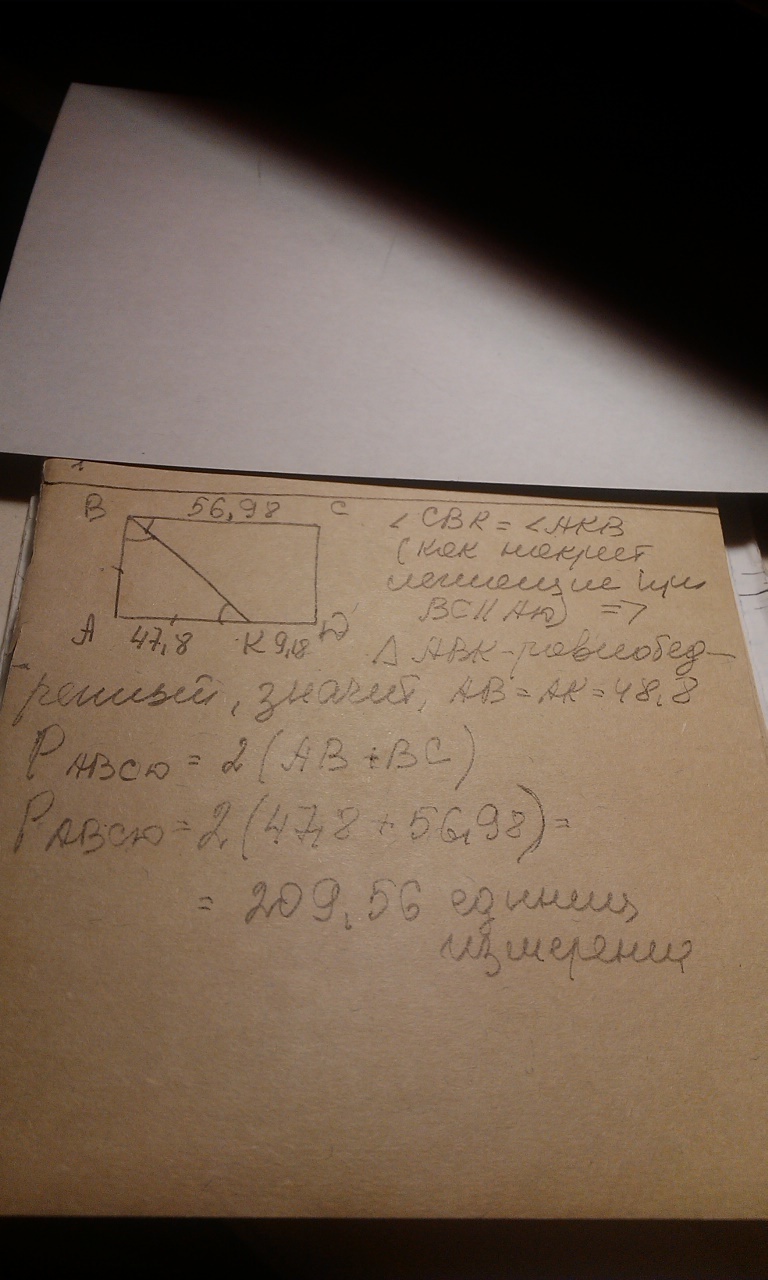 B 56,98 C
A 47,8 K 9,18 D
∠ CBK = ∠AKB
(как накрест
лежащие при
BC || AD) =>
Δ ABK - равнобед-
ренный, значит, AB = AK = 48,8
P ABCD = 2 (AB + BC)
P ABCD = 2 (47,8 + 56,98) =
= 209,56 единиц
измерения